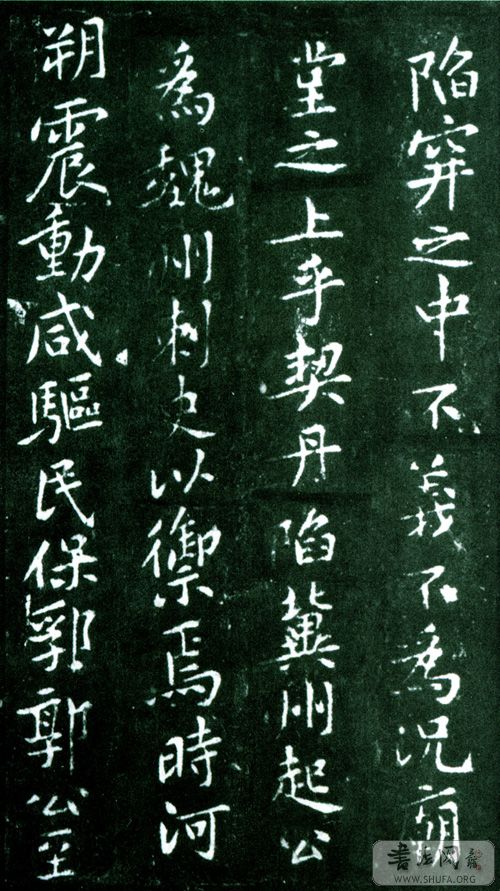 陷穽之中不義不為況廟
堂之上乎契丹陷冀州起公
為魏州刺史以禦焉時河
朔震動咸驅民保郛郭公至
书法网
WWW.SHUFA.ORG